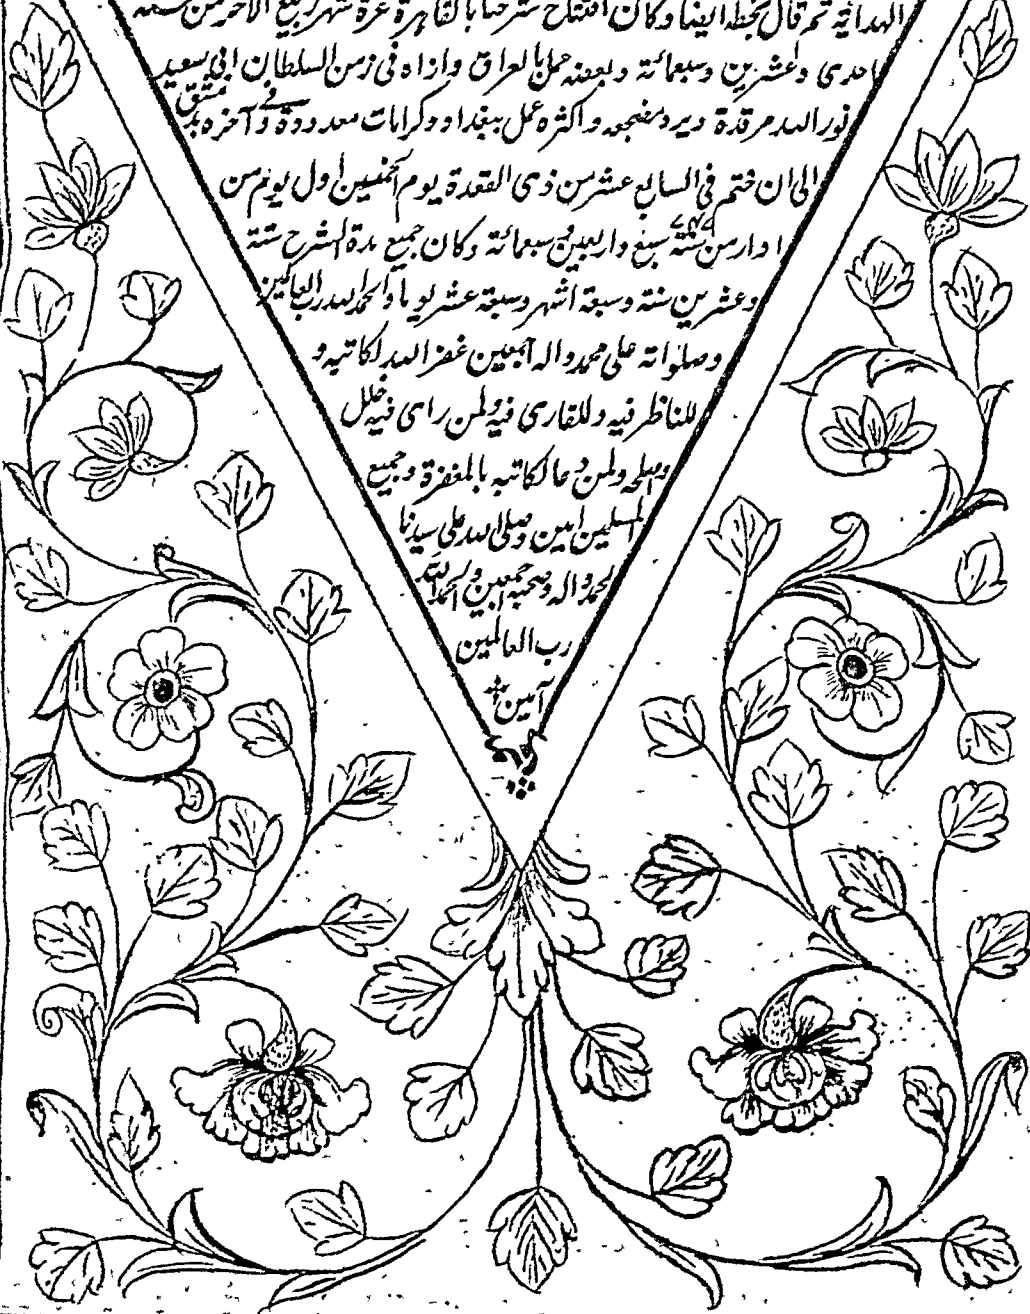 الهدایة ثم قال بخطه ایضا و کان افتتاح شرحنا بالقاهرة غرة شهر ربیع الآخر من سنة
احدی و عشرین و سبعمائة و بعضه عمل بالعراق و ازاه فی زمن السلطان ابی سعید
نور الله مرقدة و برد مضجعه و اکثره عمل ببغداد و کراسات معدودة و آخره فی دمشق
الی ان ختم فی السابع عشر من ذی القعدة یوم الخمیس اول یوم من
ادار من سنة سبع و اربعین و سبعمائة و کان جمیع مدة الشرح ستة
۷۴۷
و عشرین سنة و سبعة اشهر و سبعة عشر یوما و الحمد لله رب العالمین
و صلوٰاته علی محمد و اله اجمعین غفر الله لکاتبه و
للناظر فیه و للقاری فیه و لمن رای فیه خلل
و اصلحه و لمن دعا لکاتبه بالمغفرة و جمیع
المسلمین امین و صلی الله علی سیدنا
محمد و اله و صحبه اجمعین و الحمد لله
رب العالمین
آمین